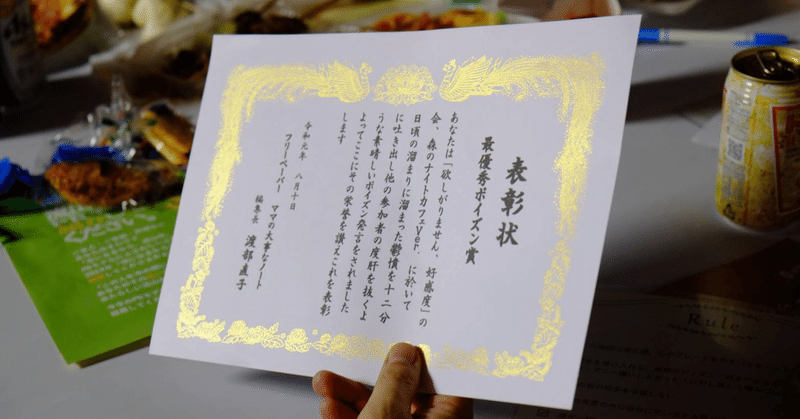 表彰状
最優秀ポイズン賞
あなたは「欲しがりません、好感度」の
会、森のナイトカフェver. に於いて
日頃の溜まりに溜まった鬱憤を十二分
に吐き出し他の参加者の度肝を抜くよ
うな素晴しいポイズン発言をされました
よってここにその栄誉を讃えこれを表彰
します
令和元年 八月十日
フリーペーパー ママの大事なノート
編集長 渡部直子
ください
Rule